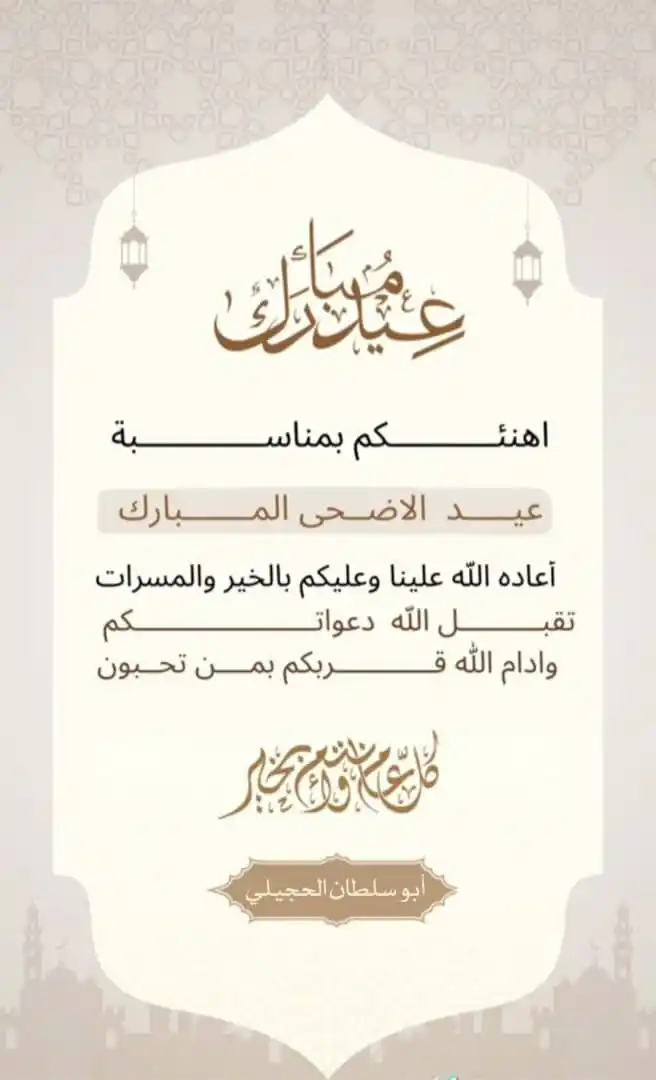 عيد مبارك
اهنئـــــــكم بمناســـــــبة
عيــــد الاضــحى المــــبارك
أعاده الله علينا وعليكم بالخير والمسرات
تقبــــــل الله دعواتــــــــــكم
وادام الله قـــــــربكم بمــن تحــبون
كل عام وأنتم بخير
أبو سلطان الحجيلي